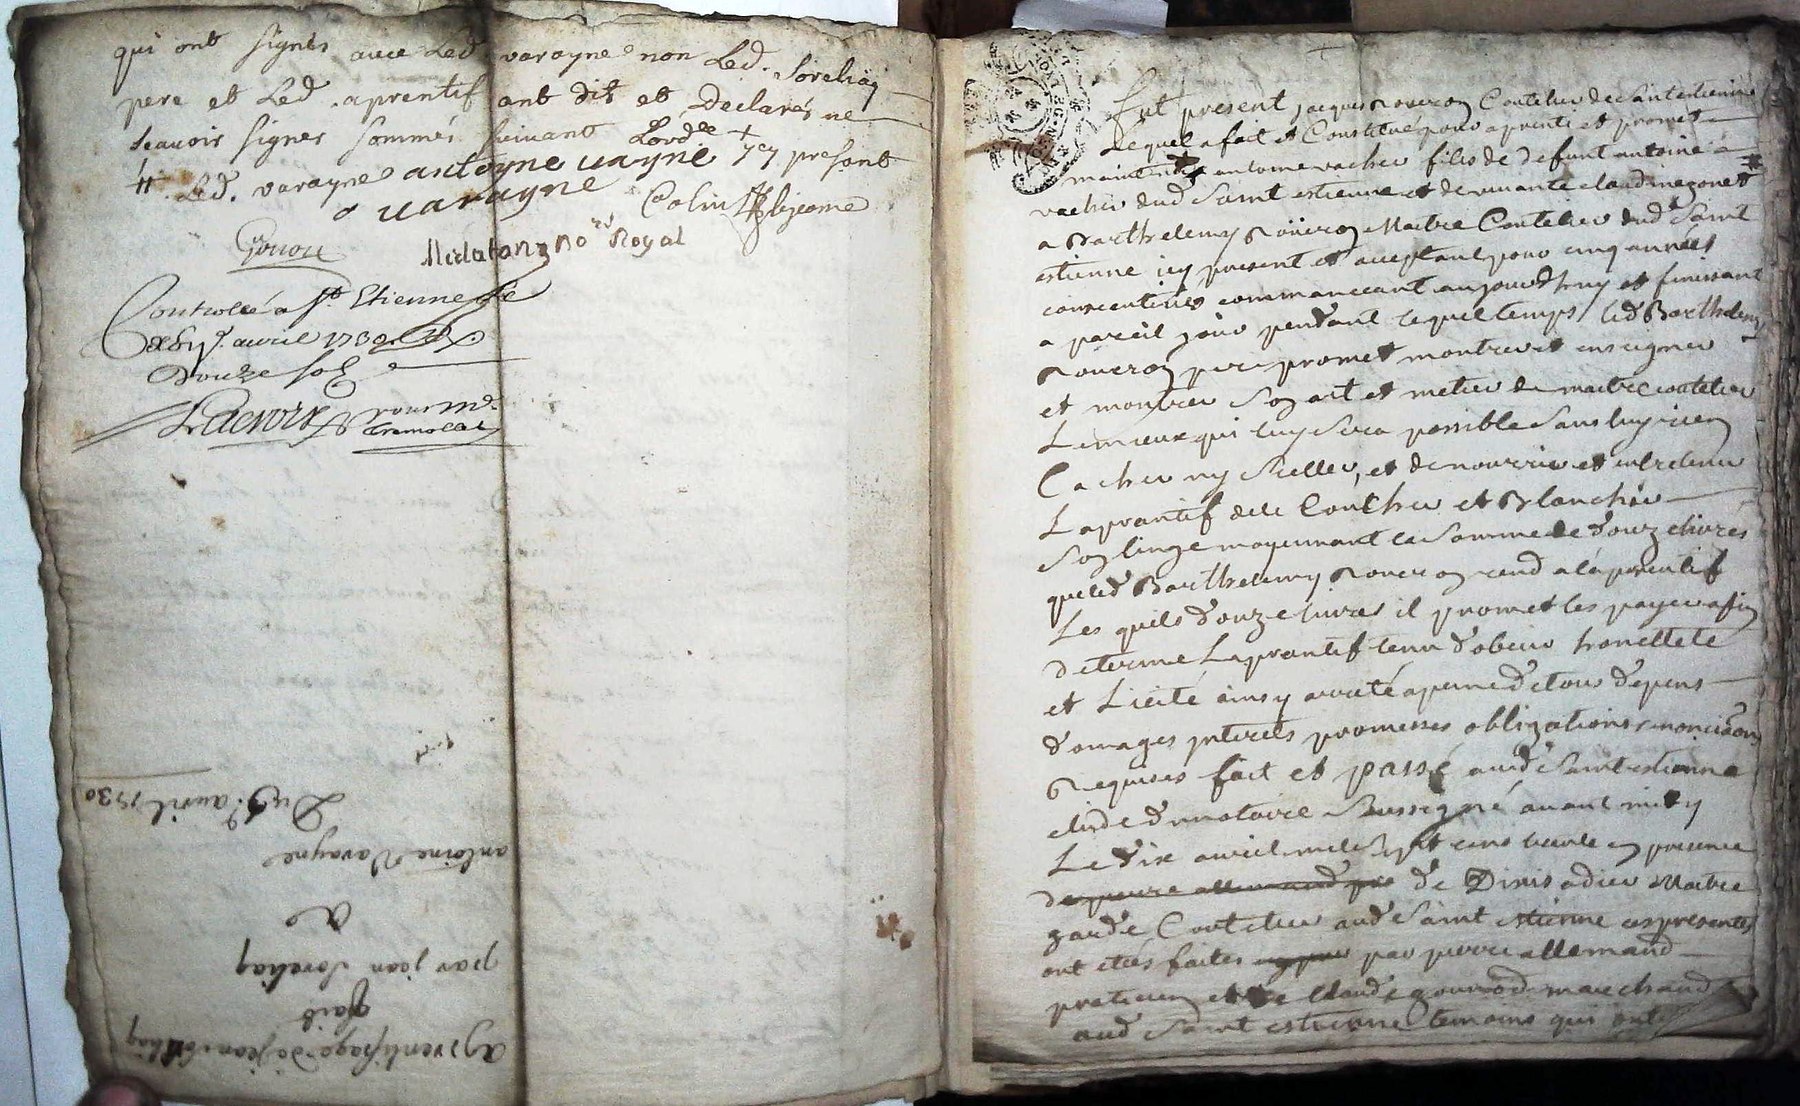 qui ont signés avec Led varayne non Led. Sorelias
pere et Led. aprentif ont dit et Declarés ne
Scavoir signer sommés suivant Lordce + ycy present
# Led. varayne antoyne vayne
varayne
Colin lejeome
Royal
Controllé a St Etienne
avril 1730
Douze sols
Lacroix pour Mr.
Du avril 1730
antoine Varayne
a
par jean Sorelias
fait
aprentissage de jean
Fut present jacques Roueron Coutelier de Saint estienne
Lequel a fait et Constitué pour aprenti et promet
maintenir antoine vacher fils de defunt antoine
vacher dud Saint estienne et de vivante claudine
a Barthelemy Roueron Maitre Coutelier dud Saint
estienne icy present et acceptant pour cinq années
consecutives commanceant aujourdhuy et finissant
a pareil jour pendant lequel temps led Barthelemy
Roueron pere promet montrer et enseigner
et montrer son art et metier de maitre coutelier
Le mieux qui luy sera possible sans luy rien
Cacher ny Seller, et de nourrir et entretenir
Laprantif de le Coucher et Blanchir
Son linge moyennant la Somme de douze livres
que led Barthelemy Roueron rend a laprentif
Les quils douze livres il promet les payer a fin
de terme Laprantif tenu dobeir honettete
et Licité ainsy arreté a peine de tous depens
domages interets promesses obligations renonciaons
Requises fait et passé aud Saint estienne
etude du notaire Sussigné avant midy
Le dix avril mil Sept cens trente en presence
de pierre allemand de Dinis adier Maitre
garde Coutelier aud Saint estienne ces presentes
ont etés faites par pierre allemand
praticien et Claude gourrod marchand
aud Saint estienne temoins qui ont